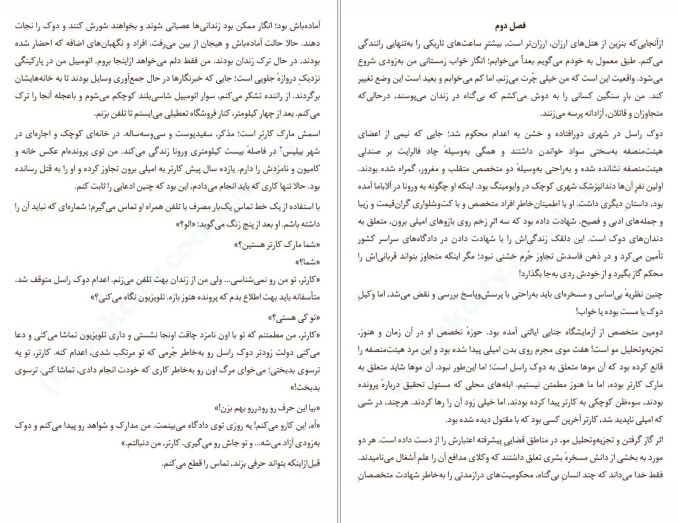 فصل دوم
ازآنجایی‌که بنزین از هتل‌های ارزان، ارزان‌تر است، بیشتر ساعت‌های تاریکی را به‌تنهایی رانندگی
می‌کنم. طبق معمول به خودم می‌گویم بعداً می‌خوابم؛ انگار خواب زمستانی من به‌زودی شروع
می‌شود. واقعیت این است که من خیلی چُرت می‌زنم، اما کم می‌خوابم و بعید است این وضع تغییر
کند. من بار سنگین کسانی را به دوش می‌کشم که بی‌گناه در زندان می‌پوسند، درحالی‌که
متجاوزان و قاتلان، آزادانه پرسه می‌زنند.
دوک راسل در شهری دورافتاده و خشن به اعدام محکوم شد؛ جایی که نیمی از اعضای
هیئت‌منصفه به‌سختی سواد خواندن داشتند و همگی به‌وسیلهٔ چاد فالرایت بر صندلی
هیئت‌منصفه نشانده شده و به‌راحتی به‌وسیلهٔ دو متخصص متقلب و مغرور، گمراه شده بودند.
اولین نفرِ آن‌ها دندانپزشک شهری کوچک در وایومینگ بود. اینکه او چگونه به ورونا در آلاباما آمده
بود، داستانِ دیگری داشت. او با اطمینانِ‌خاطرِ افراد متخصص و با کت‌وشلواری گران‌قیمت و زیبا
و جمله‌های ادبی و فصیح، شهادت داده بود که سه اثرِ زخم روی بازوهای امیلی برون، متعلق به
دندان‌های دوک است. این دلقک زندگی‌اش را با شهادت دادن در دادگاه‌های سراسر کشور
تأمین می‌کرد و در ذهن فاسدش تجاوز جُرم خشنی نبود؛ مگر اینکه متجاوز بتواند قربانی‌اش را
محکم گاز بگیرد و از خودش ردی به‌جا بگذارد!
چنین نظریهٔ بی‌اساس و مسخره‌ای باید به‌راحتی با پرسش‌وپاسخ بررسی و نقض می‌شد، اما وکیلِ
دوک یا مست بوده یا خواب!
دومین متخصص از آزمایشگاه جنایی ایالتی آمده بود. حوزهٔ تخصص او در آن زمان و هنوز،
تجزیه‌وتحلیل مو است! هفت موی مجرم روی بدن امیلی پیدا شده بود و این مرد هیئت‌منصفه را
قانع کرده بود که آن موها متعلق به دوک راسل است؛ اما این‌طور نبود. آن موها شاید متعلق به
مارک کارتر بوده، اما ما هنوز مطمئن نیستیم. ابله‌های محلی که مسئول تحقیق دربارهٔ پرونده
بودند، سوءظن کوچکی به کارتر پیدا کرده بودند، اما خیلی زود آن را رها کردند. هرچند، در شبی
که امیلی ناپدید شد، کارتر آخرین کسی بود که با مقتول دیده شده بود.
اثر گاز گرفتن و تجزیه‌وتحلیل مو، در مناطق قضاییِ پیشرفته اعتبارش را از دست داده است. هر دو
مورد به بخشی از دانش مسخرهٔ بشری تعلق داشتند که وکلای مدافع آن را علم آشغال می‌نامیدند.
فقط خدا می‌داند که چند انسان بی‌گناه، محکومیت‌های درازمدتی را به‌خاطرِ شهادت متخصصان
آماده‌باش بود؛ انگار ممکن بود زندانی‌ها عصبانی شوند و بخواهند شورش کنند و دوک را نجات
دهند. حالا حالت آماده‌باش و هیجان از بین می‌رفت. افراد و نگهبان‌های اضافه که احضار شده
بودند، در حال ترک زندان بودند. من فقط دلم می‌خواهد ازاینجا بروم. اتومبیل من در پارکینگی
نزدیکِ دروازهٔ جلویی است؛ جایی که خبرنگارها در حال جمع‌آوری وسایل بودند تا به خانه‌هایشان
برگردند. از راننده تشکر می‌کنم، سوار اتومبیل شاسی‌بلند کوچکم می‌شوم و باعجله آنجا را ترک
می‌کنم. بعد از چهار کیلومتر، کنار فروشگاه تعطیلی می‌ایستم تا تلفن بزنم.
اسمش مارک کارتر است؛ مذکر، سفیدپوست و سی‌وسه‌ساله. در خانه‌ای کوچک و اجاره‌ای در
شهر بیلیس در فاصلهٔ بیست کیلومتری ورونا زندگی می‌کند. من توی پرونده‌ام عکس خانه و
کامیون و نامزدش را دارم. یازده سال پیش کارتر به امیلی برون تجاوز کرده و او را به قتل رسانده
بود. حالا تنها کاری که باید انجام می‌دادم، این بود که چنین ادعایی را ثابت کنم.
با استفاده از یک خط تماسِ یک‌بار مصرف با تلفن همراه او تماس می‌گیرم؛ شماره‌ای که نباید آن را
داشته باشم. او بعد از پنج زنگ می‌گوید: «الو؟»
«شما مارک کارتر هستین؟»
«شما؟»
«کارتر، تو من رو نمی‌شناسی... ولی من از زندان بهت تلفن می‌زنم. اعدام دوک راسل متوقف شد.
متأسفانه باید بهت اطلاع بدم که پرونده هنوز بازه. تلویزیون نگاه می‌کنی؟»
«تو کی هستی؟»
«کارتر، من مطمئنم که تو با اون نامزد چاقت اونجا نشستی و داری تلویزیون تماشا می‌کنی و دعا
می‌کنی دولت زودتر دوک راسل رو به‌خاطر جُرمی که تو مرتکب شدی، اعدام کنه. کارتر، تو یه
ترسوی بدبختی؛ می‌خوای مرگ اون رو به‌خاطر کاری که خودت انجام دادی، تماشا کنی. ترسوی
بدبخت!»
«بیا این حرف رو رودررو بهم بزن!»
«آه، این کارو می‌کنم! یه روزی توی دادگاه می‌بینمت. من مدارک و شواهد رو پیدا می‌کنم و دوک
به‌زودی آزاد می‌شه... و تو جاش رو می‌گیری. کارتر، من دنبالتم.»
قبل‌ازاینکه بتواند حرفی بزند، تماس را قطع می‌کنم.